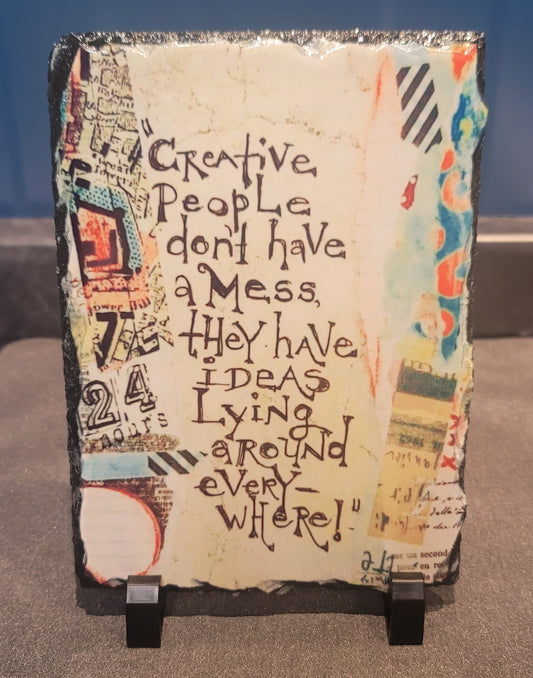 "Creative
People
dont have
a Mess,
they have
ideas
Lying
around
every-
where!"
24
hours
ur un second
pour en re